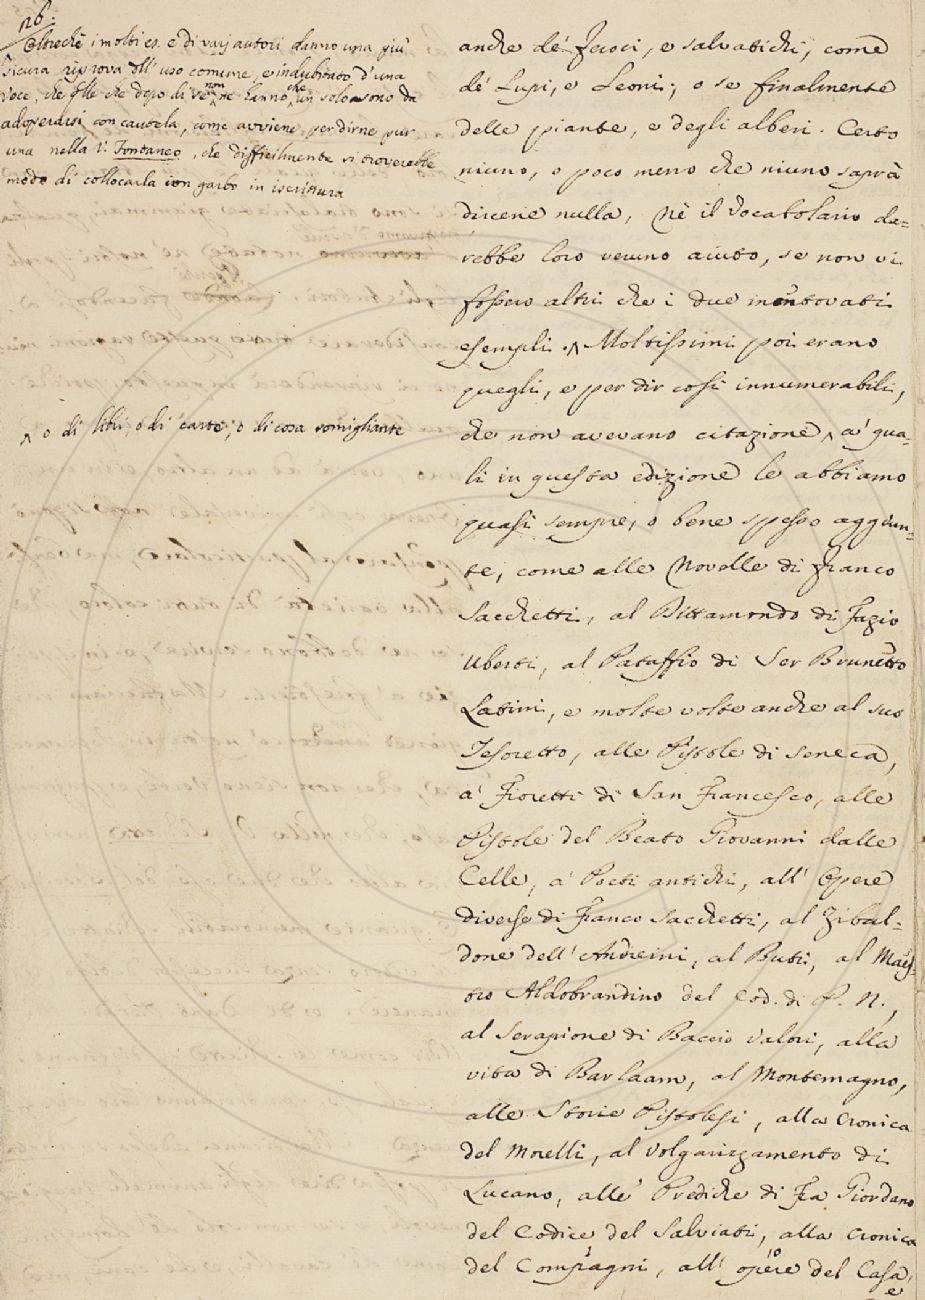 126.
Oltrechè i molti es. e di varj autori danno una più
sicura riprova dell' uso comune, e indubitato d'una
voce, che quelle che dopo di se non ne hanno che un solo sono da
adoperarsi con cautela, come avviene per dirne pur
una nella V. Fontaneo, che difficilmente si troverebbe
modo di collocarla con garbo in iscrittura
^ o di libri, o di carte, o di cosa somigliante
anche de' feroci, e salvatichi, come
de' Lupi, e Leoni; o se finalmente
delle piante, e degli alberi. Certo
niuno, o poco meno che niuno saprà
dircene nulla, nè il Vocabolario da=
rebbe loro veruno aiuto, se non vi
fossero altri che i due mentovati
esempli. ^ Moltissimi poi erano
quegli, e per dir così innumerabili,
che non avevano citazione ^ a' qua=
li in questa edizione le abbiamo
quasi sempre, o bene spesso aggiun=
te, come alle Novelle di Franco
Sacchetti, al Dittamondo di Fazio
Uberti, al Pataffio di Ser Brunetto
Latini, e molte volte anche al suo
Tesoretto, alle Pistole di Seneca,
a' Fioretti di San Francesco, alle
Pistole del Beato Giovanni dalle
Celle, a' Poeti antichi, all' Opere
diverse di Franco Sacchetti, al Zibal=
done dell' Andreini, al Buti, al Maes=
tro Aldobrandino del Cod. di P. N.,
al Serapione di Baccio Valori, alla
vita di Barlaam, al Montemagno,
alle Storie Pistolesi, alla Cronica
del Morelli, al Volgarizzamento di
Lucano, alle Prediche di Fra Giordano
del Codice del Salviati, alla Cronica
del Compagni, all' opere del Casa,
e